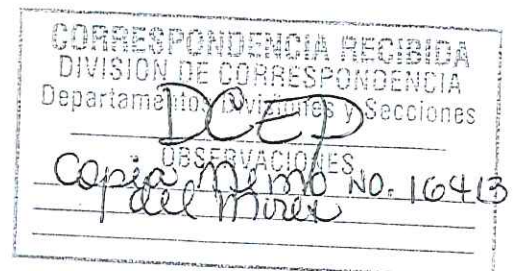 CORRESPONDENCIA RECIBIDA
DIVISION DE CORRESPONDENCIA
Departamentos Divisiones y Secciones
DCED
OBSERVACIONES
Copia Memo NO. 16413
del Mirex